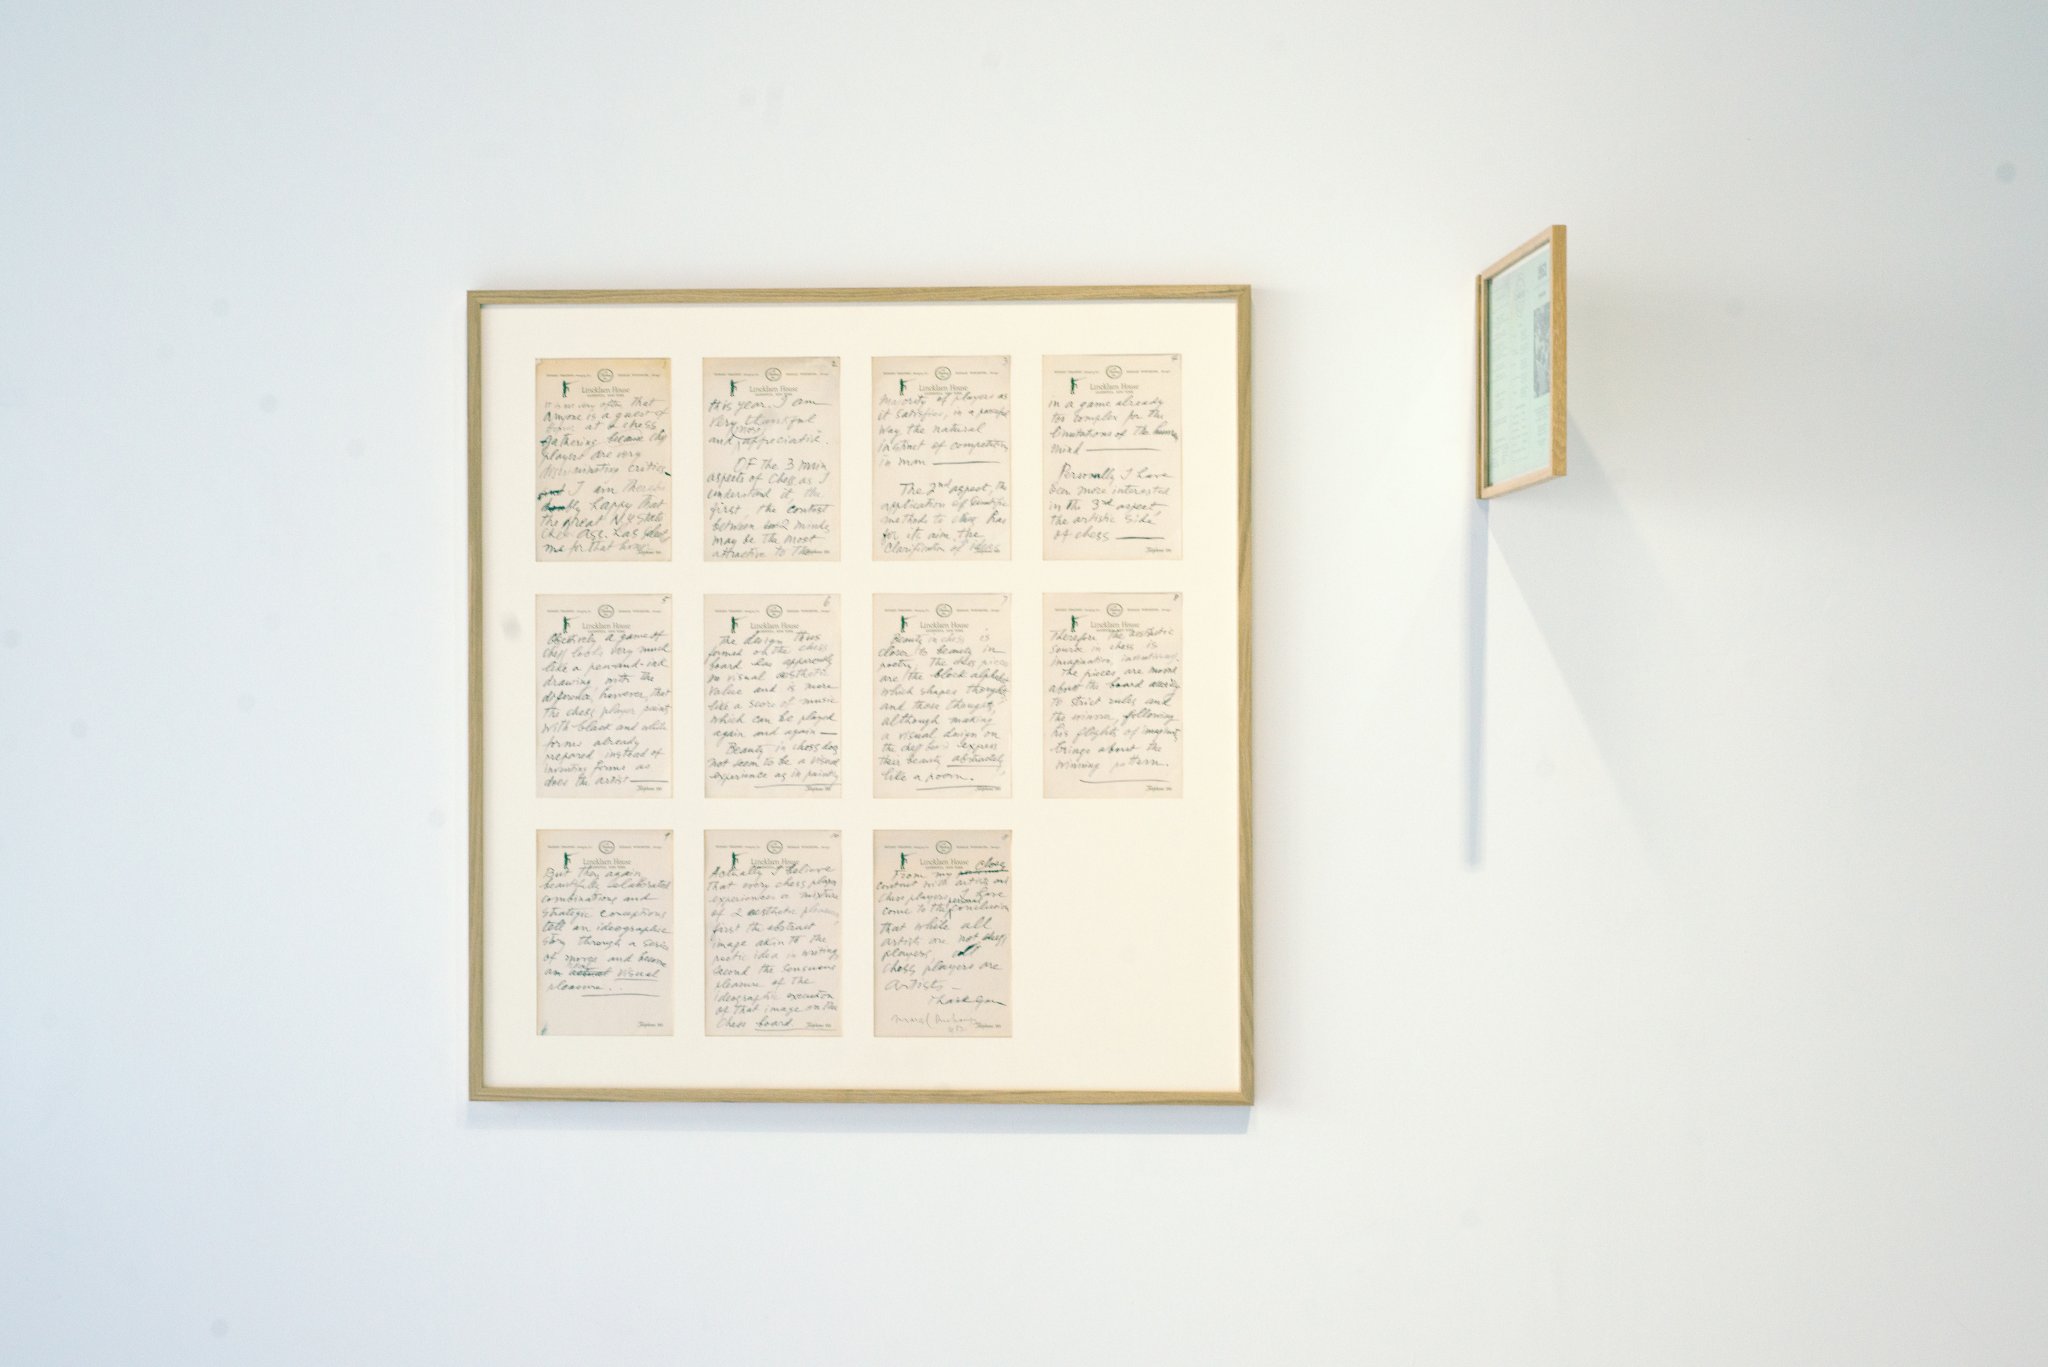 1
Lincklaen House
It is not very often that
anyone is a guest of
at a chess
gathering because chess
players are very
discriminating critics
and I am thereby
doubly happy that
the great N.Y State
Chess Ass. has
me for that honor
2
Lincklaen House
this year. I am
very thankful
(more)
and appreciative.
OF the 3 main
aspects of chess as I
understand it, the
first, the contest
between 2 minds
may be the most
attractive to the
3
Lincklaen House
majority of players as
it satisfies, in a peaceful
way the natural
instinct of competition
in man
The 2nd aspect, the
application of scientific
methods to chess has
for its aim the
clarification of ideas
4
Lincklaen House
in a game already
too complex for the
limitations of the human
mind
Personally I have
been more interested
in the 3rd aspect,
the artistic side
of chess
5
Lincklaen House
Objectively a game of
chess looks very much
like a pen-and-ink
drawing with the
difference, however, that
the chess player paints
with black and white
forms already
prepared instead of
inventing forms as
does the artist
6
Lincklaen House
The design thus
formed on the chess
board has apparently
no visual aesthetic
value and is more
like a score of music
which can be played
again and again
Beauty in chess does
not seem to be a visual
experience as in painting
7
Lincklaen House
Beauty in chess is
closer to beauty in
poetry; the chess pieces
are the block alphabet
which shapes thoughts
and these thoughts,
although making
a visual design on
the chess board express
their beauty abstractly
like a poem.
8
Lincklaen House
Therefore the aesthetic
source in chess is
imagination,
The pieces are moved
about the board according
to strict rules and
the winner, following
his flights of imagination
brings about the
winning pattern.
9
Lincklaen House
But then again
beautifully elaborated
combinations and
strategic conceptions
tell an ideographic
story through a series
of moves and become
an actual visual
pleasure..
10
Lincklaen House
Actually I believe
that every chess player
experiences a mixture
of 2 aesthetic pleasures
first the abstract
image akin to the
poetic idea in writing,
second the sensuous
pleasure of the
ideographic execution
of that image on the
chess board.
Lincklaen House
close
From my
contact with artists and
chess players I have
personal
come to the conclusion
that while all
artists are not chess
players, all
chess players are
artists
Thank you
Marcel Duchamp